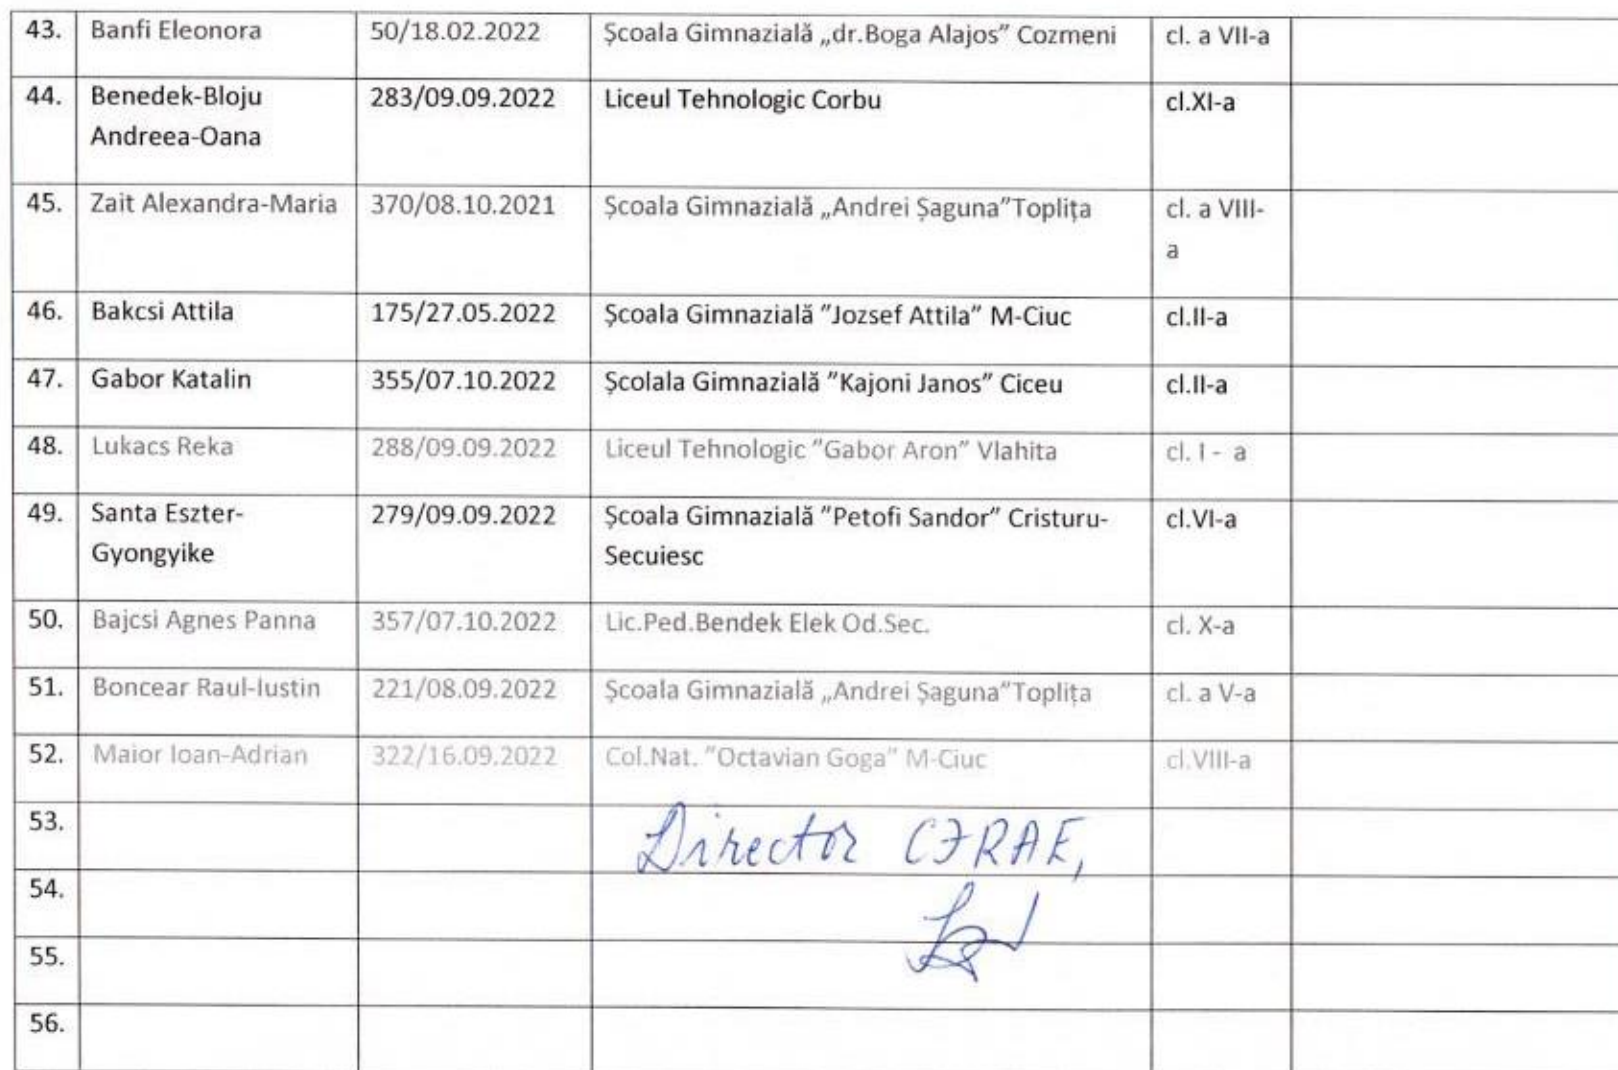 43. Banfi Eleonora 50/18.02.2022 Școala Gimnazială „dr.Boga Alajos” Cozmeni cl. a VII-a
44. Benedek-Bloju 283/09.09.2022 Liceul Tehnologic Corbu cl.XI-a
Andreea-Oana
45. Zait Alexandra-Maria 370/08.10.2021 Școala Gimnazială „Andrei Șaguna”Toplița cl. a VIII-
a
46. Bakcsi Attila 175/27.05.2022 Școala Gimnazială ”Jozsef Attila” M-Ciuc cl.II-a
47. Gabor Katalin 355/07.10.2022 Școlala Gimnazială ”Kajoni Janos” Ciceu cl.II-a
48. Lukacs Reka 288/09.09.2022 Liceul Tehnologic ”Gabor Aron” Vlahita cl. I - a
49. Santa Eszter- 279/09.09.2022 Școala Gimnazială ”Petofi Sandor” Cristuru- cl.VI-a
Gyongyike Secuiesc
50. Bajcsi Agnes Panna 357/07.10.2022 Lic.Ped.Bendek Elek Od.Sec. cl. X-a
51. Boncear Raul-Iustin 221/08.09.2022 Școala Gimnazială „Andrei Șaguna”Toplița cl. a V-a
52. Maior Ioan-Adrian 322/16.09.2022 Col.Nat. ”Octavian Goga” M-Ciuc cl.VIII-a
53.
Director CJRAE,
54.
55.
56.